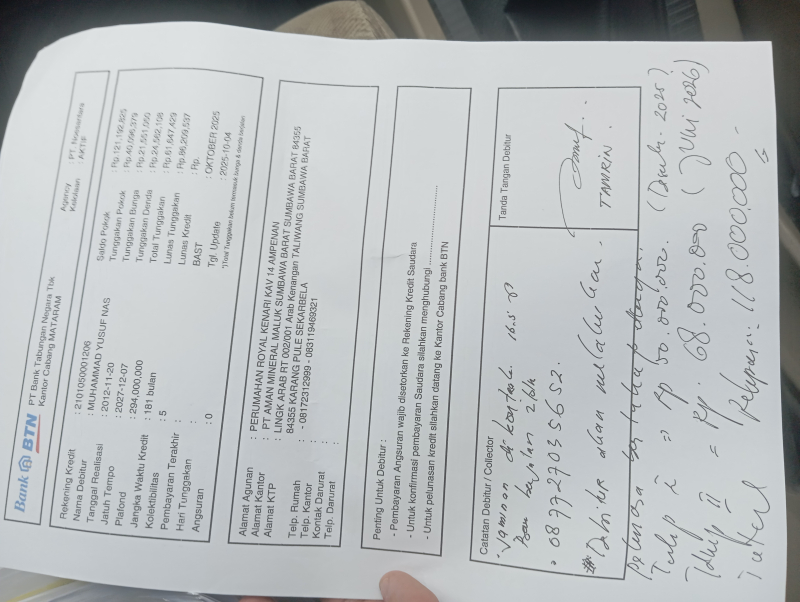 Bank BTN PT Bank Tabungan Negara Tbk
Kantor Cabang MATARAM
Agency : PT. Nusantara
Kelolaan : AKTIF
Rekening Kredit : 2101050001206
Nama Debitur : MUHAMMAD YUSUF NAS
Tanggal Realisasi : 2012-11-20
Jatuh Tempo : 2027-12-07
Plafond : 294,000,000
Jangka Waktu Kredit : 181 bulan
Kolektibilitas : 5
Pembayaran Terakhir :
Hari Tunggakan :
Angsuran : 0
Saldo Pokok : Rp.121,192,825
Tunggakan Pokok : Rp.40,096,379
Tunggakan Bunga : Rp.21,551,050
Tunggakan Denda : Rp.24,562,108
Total Tunggakan : Rp.61,647,429
Lunas Tunggakan : Rp.86,209,537
Lunas Kredit : Rp.
BAST : OKTOBER 2025
Tgl. Update : 2025-10-04
*)Total Tunggakan belum termasuk bunga & denda berjalan
Alamat Agunan : PERUMAHAN ROYAL KENARI KAV 14 AMPENAN
Alamat Kantor : PT AMAN MINERAL MALUK SUMBAWA BARAT SUMBAWA BARAT 84355
Alamat KTP : LINGK ARAB RT 002/001 Arab Kenangan TALIWANG SUMBAWA BARAT
84355 KARANG PULE SEKARBELA
Telp. Rumah : - 08172312999 - 083119469321
Telp. Kantor :
Kontak Darurat :
Telp. Darurat :
Penting Untuk Debitur :
- Pembayaran Angsuran wajib disetorkan ke Rekening Kredit Saudara
- Untuk konfirmasi pembayaran Saudara silahkan menghubungi
- Untuk pelunasan kredit silahkan datang ke Kantor Cabang bank BTN
Catatan Debitur / Collector
Tanda Tangan Debitur
Jaminan di kontrak 16.5
2 bln
087727035652.
Debitur akan melakukan
TAMRIN.
Pelunasan bertahap
Tahap I => Rp 50.000.000. (2025)
Tahap II = Rp 68.000.000 (Juni 2026)
Total Pelunasan: 118.000.000-